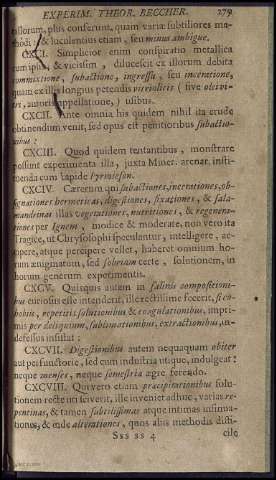 EXPERIM. THEOR. BECCHER. 279
istorum, plus conferunt, quam varia: subtiliores ma-
& luculentius etiam, seu minus ambigue.
CXCI. Simplicior enim conspiratio metallica
& vicissim, dilucescit ex illorum debita
commixtione, subactione, ingressu, seu inceratione,
quam ex illis longius petendis (sive
, autoris appellatione,) usibus.
CXCII. Ante omnia his quidem nihil ita crude
obtinendum venit, sed opus est penitioribus subactio-
nibus:
CXCIII. Quod quidem tentantibus, monstrare
possunt experimenta illa, juxta Miner. arenar. insti-
tuenda cum lapide
CXCIV. Cæterum qui subactiones, incerationes, ob-
signationes hermeticas, digestiones, fixationes, & sala-
mandrinas illas vegetationes, nutritiones, & regenera-
tiones per Ignem, modice & moderate, non vero ita
Tragice, ut Chrysosophi speculantur, intelligere, ac-
cipere, atque percipere vellet, haberet omnium ho-
rum ænigmatum, sed solarium certe, solutionem, in
horum generum experimentis.
CXCV. Quisquis autem in salinis compositioni-
bus curiosus esse intenderit, ille rectissime fecerit, si
, repetitis solutionibus & coagulationibus, impri-
mis per deliquium, sublimationibus, extractionibus, in-
defessus institut:
CXCVII. Digestionibus autem nequaquam obiter
aut perfunctorie, sed cum industria utique, indulgeat:
neque menses, neque semestria ægre ferendo.
CXCVIII. Qui vero etiam præcipitationibus solu-
tionem recte uti sciverit, ille inveniet adhuc, varias re-
pentinas, & tamen subtilissimas atque intimas insinua-
tiones, & inde alterationes, quos alias methodis disti-
Sss ss 4 cile